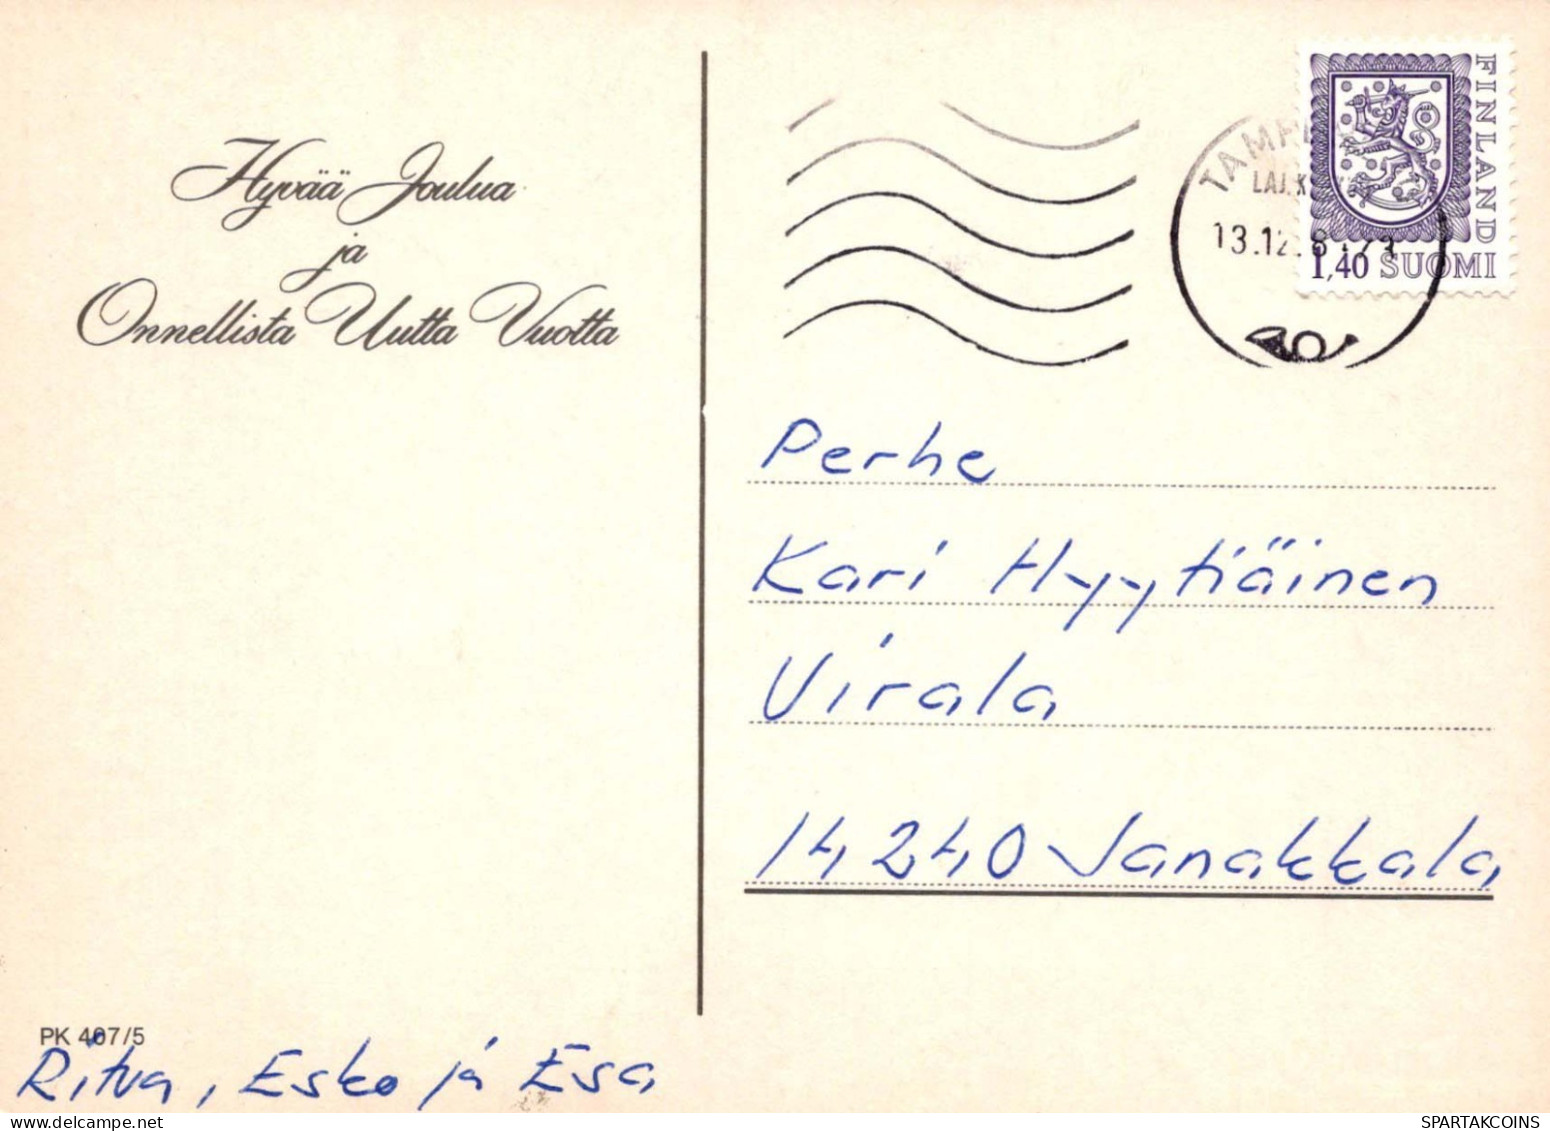 Hyvää Joulua
ja
Onnellista Uutta Vuotta
FINLAND
1,40 SUOMI
13.12.8
Perhe
Kari Hyytiäinen
Virala
14240 Janakkala
PK 407/5
Ritva, Esko ja Esa
SPARTAKCOINS